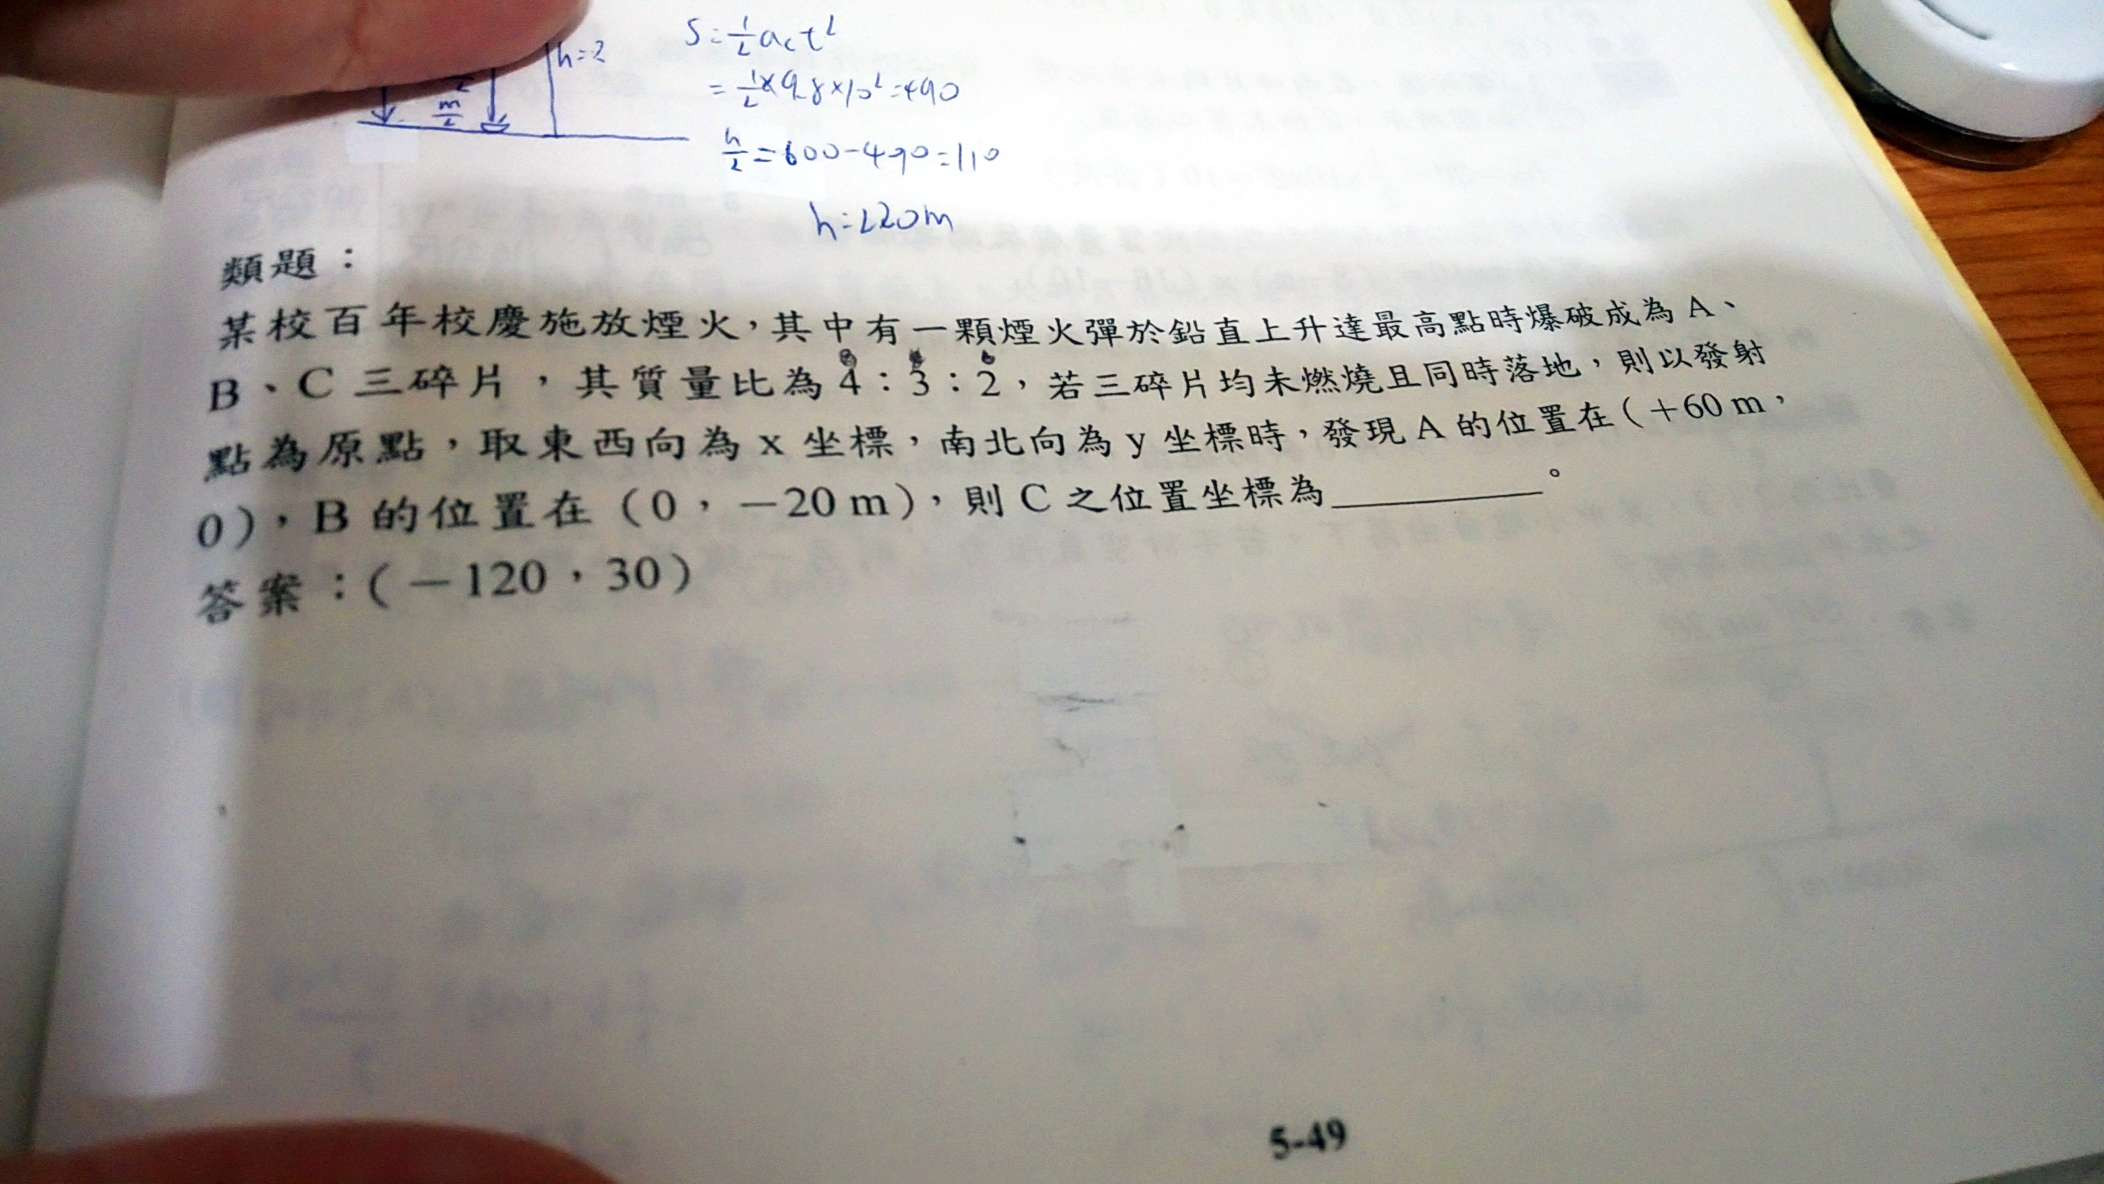 h=?
S=½act²
=½×9.8×10²=490
m/2
h/2=600-490=110
h=220m
類題：
某校百年校慶施放煙火，其中有一顆煙火彈於鉛直上升達最高點時爆破成為 A、
B、C 三碎片，其質量比為 4：3：2，若三碎片均未燃燒且同時落地，則以發射
點為原點，取東西向為 x 坐標，南北向為 y 坐標時，發現 A 的位置在（＋60 m，
0），B 的位置在（0，－20 m），則 C 之位置坐標為＿＿＿＿＿。
答案：（－120，30）
5-49